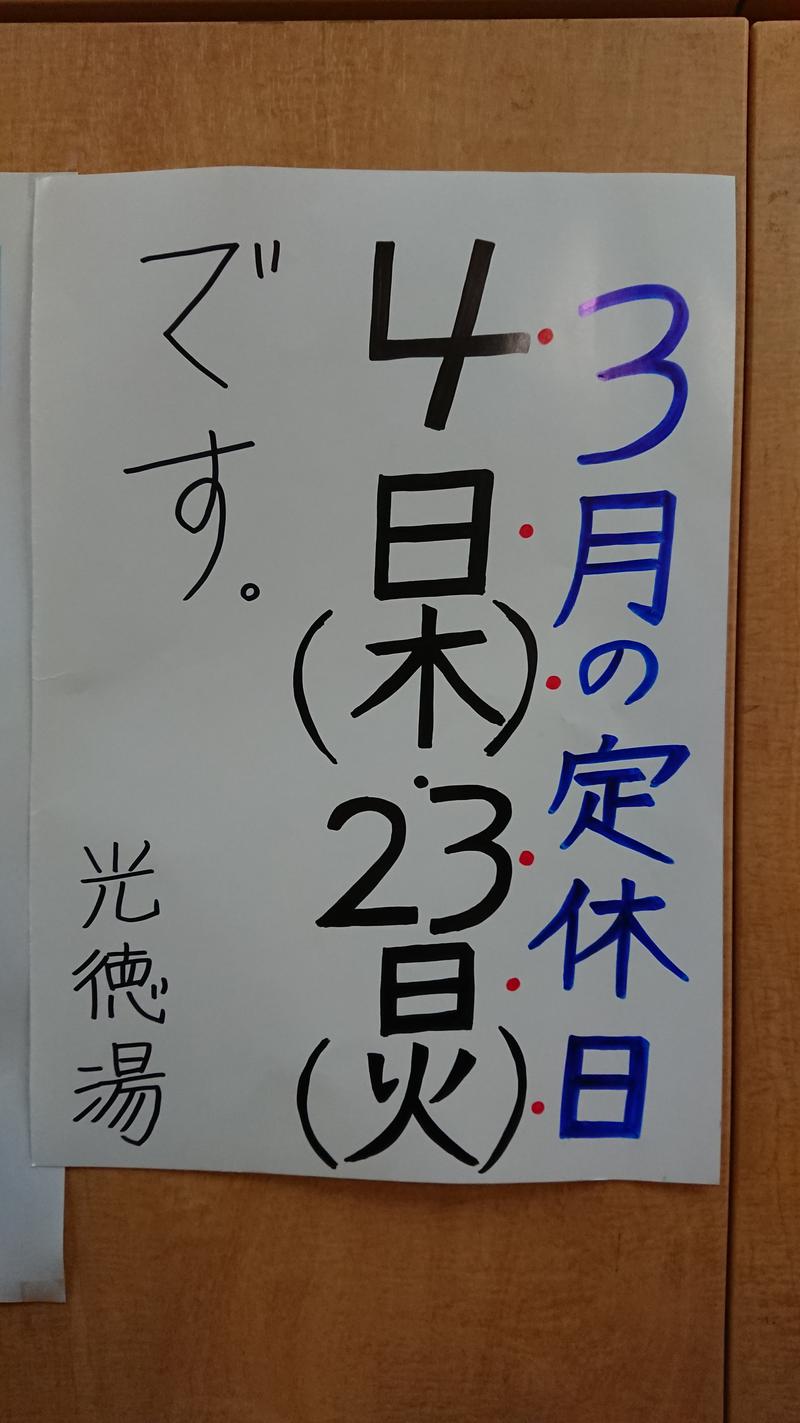 3月の定休日
4日(木)・23日(火)
です。
光徳湯